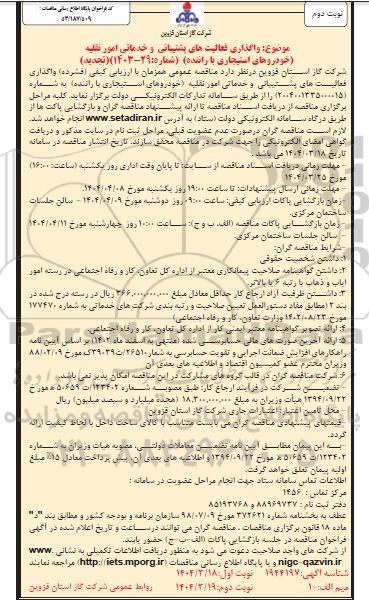 نوبت دوم
کد فراخوان پایگاه اطلاع رسانی مناقصات :
۵۳/۱۸۷/۵۰۹
شرکت گاز استان قزوین
موضوع: واگذاری فعالیت های پشتیبانی و خدماتی امور نقلیه
(خودروهای استیجاری با راننده) (شماره:۲۹-۱۴۰۳)(تجدید)
شرکت گاز استان قزوین درنظر دارد مناقصه عمومی همزمان با ارزیابی کیفی (فشرده) واگذاری
فعالیت های پشتیبانی و خدماتی امور نقلیه (خودروهای استیجاری با راننده) به شماره
(۲۰۰۴۰۰۱۳۳۵۰۰۰۰۱۵) را از طریق سامانه تدارکات الکترونیکی دولت برگزار نماید. کلیه مراحل
برگزاری مناقصه از دریافت اسناد مناقصه تا ارائه پیشنهاد مناقصه گران و بازگشایی پاکت ها از
طریق درگاه سامانه الکترونیکی دولت (ستاد) به آدرس www.setadiran.ir انجام خواهد شد.
لازم است مناقصه گران درصورت عدم عضویت قبلی، مراحل ثبت نام در سایت مذکور و دریافت
گواهی امضای الکترونیکی را جهت شرکت در مناقصه محقق سازند. تاریخ انتشار مناقصه در سامانه
تاریخ ۱۴۰۴/۰۳/۱۸ می باشد.
- مهلت زمانی دریافت اسناد مناقصه از سایت: تا پایان وقت اداری روز یکشنبه (ساعت: ۱۶:۰۰)
مورخ ۱۴۰۴/۰۳/۲۵
- مهلت زمانی ارسال پیشنهادات: تا ساعت ۱۹:۰۰ روز یکشنبه مورخ ۱۴۰۴/۰۴/۰۸.
-زمان بازگشایی پاکات ارزیابی کیفی: ساعت ۰۹:۰۰ روز دوشنبه مورخ ۱۴۰۴/۰۴/۰۹ - سالن جلسات
ساختمان مرکزی.
- زمان بازگشایی پاکات مناقصه (الف، ب و ج): ساعت ۱۰:۰۰ روز چهارشنبه مورخ ۱۴۰۴/۰۴/۱۱
- سالن جلسات ساختمان مرکزی.
-شرایط مناقصه گران:
۱: داشتن شخصیت حقوقی
۲: داشتن گواهینامه صلاحیت پیمانکاری معتبر از اداره کل تعاون، کار و رفاه اجتماعی در رسته امور
ایاب و ذهاب با رتبه ۶ یا بالاتر
۳: داشتن ظرفیت آزاد ارجاع کار حداقل معادل مبلغ ۳۶۶,۰۰۰,۰۰۰,۰۰۰ ریال در رسته درج شده در
بند ۲ (مطابق مفاد دستورالعمل تعیین صلاحیت و رتبه بندی شرکت های خدماتی به شماره ۱۷۷۴۷۰
مورخ ۱۴۰۲/۰۸/۲۳ وزارت تعاون، کار و رفاه اجتماعی)
۴: ارائه تصویر گواهینامه معتبر ایمنی کار از اداره کل تعاون، کار و رفاه اجتماعی.
۵: ارائه آخرین صورت های مالی حسابرسی شده (منتهی به اسفند ماه ۱۴۰۲) بر اساس آیین نامه
راهکارهای افزایش ضمانت اجرایی و تقویت حسابرسی به شماره ۲۶۵۱۰/ت۳۹۰۳۹ک مورخ ۸۸/۰۲/۰۹
وزیران محترم عضو کمیسیون اقتصاد و اطلاعیه های بعدی آن
۶: شرکت مناقصه گران در قالب گروه های مشارکت در این مناقصه امکان پذیر نمی باشد.
- تضمین شرکت در فرآیند ارجاع کار: طبق مصوبه شماره ۱۲۳۴۰۲/ت ۵۰۶۵۹ هـ مورخ
۱۳۹۴/۰۹/۲۲ هیأت وزیران به مبلغ ۱۸,۳۰۰,۰۰۰,۰۰۰ (هجده میلیارد و سیصد میلیون) ریال
- محل تامین اعتبار: اعتبارات جاری شرکت گاز استان قزوین
-قیمتهای پیشنهادی مناقصه گران می بایست متناسب با کالای ساخت داخل با لحاظ کیفیت ارائه
گردد.
-به این پیمان مطابق آیین نامه تضمین معاملات دولتی، مصوبه هیات وزیران به شماره
۱۲۳۴۰۲/ت ۵۰۶۵۹ هـ مورخ ۱۳۹۴/۰۹/۲۲ و اطلاعیه های بعدی آن، پیش پرداخت معادل ۱۵% مبلغ
اولیه پیمان تعلق خواهد گرفت.
اطلاعات تماس سامانه ستاد جهت انجام مراحل عضویت در سامانه :
مرکز تماس : ۱۴۵۶
دفتر ثبت نام : ۸۸۹۶۹۷۳۷ و ۸۵۱۹۳۷۶۸
عطف به بخشنامه شماره ۳۷۲۶۲۱ مورخ ۹۸/۰۷/۰۹ سازمان برنامه و بودجه کشور و مطابق بند "د"
ماده ۱۸ قانون برگزاری مناقصات ، مناقصه گران می توانند درساعت و تاریخ اعلام شده در آگهی
فراخوان مناقصه در جلسه بازگشایی پاکات (الف-ب-ج) حضور یابند.
از شرکت های واجد صلاحیت دعوت می شود به منظور دریافت اطلاعات تکمیلی به نشانی www.
nigc-qazvin.ir و یا پایگاه اطلاع رسانی مناقصات (http://iets.mporg.ir) مراجعه نمایند
شناسه آگهی: ۱۹۴۴۱۹۷ نوبت اول: ۱۴۰۴/۳/۱۸
میم الف: ۱۰ نوبت دوم: ۱۴۰۴/۳/۱۹ روابط عمومی شرکت گاز استان قزوین